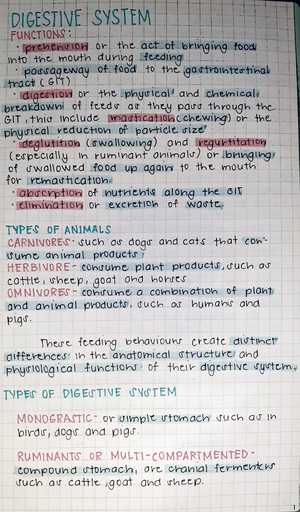 DIGESTIVE SYSTEM
FUNCTIONS:
· prehension or the act of bringing food
into the mouth during feeding
· passageway of food to the gastrointestinal
tract (GIT)
· digestion or the physical and chemical
breakdown of feeds as they pass through the
GIT, this include mastication (chewing) or the
physical reduction of particle size
· deglutition (swallowing) and regurtitation
(especially in ruminant animals) or bringing
of swallowed food up again to the mouth
for remastication.
· absorption of nutrients along the GIT
· elimination or excretion of waste.
TYPES OF ANIMALS
CARNIVORES- such as dogs and cats that con-
sume animal products.
HERBIVORE- consume plant products, such as
cattle, sheep, goat and horses
OMNIVORES- consume a combination of plant
and animal products, such as humans and
pigs.
These feeding behaviours create distinct
differences in the anatomical structure and
physiological functions of their digestive system.
TYPES OF DIGESTIVE SYSTEM
MONOGRASTIC- or simple stomach such as in
birds, dogs and pigs.
RUMINANTS OR MULTI-COMPARTMENTED-
compound stomach, are cranial fermenters
such as cattle, goat and sheep.
1